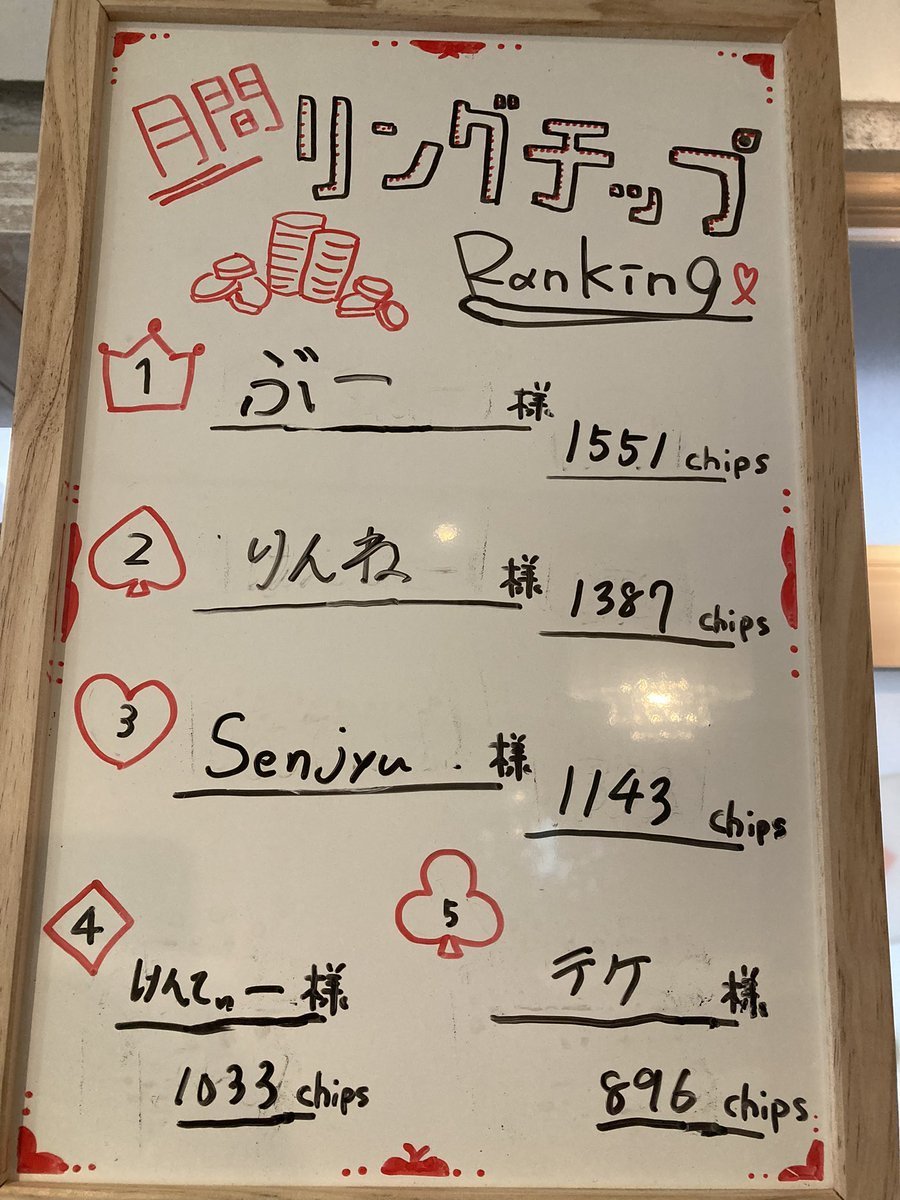 月間 リングチップ
Ranking
1 ぶー 様
1551 chips
2 りんね 様
1387 chips
3 Senjyu 様
1143 chips
4 けんてぃー 様
1033 chips
5 テケ 様
896 chips